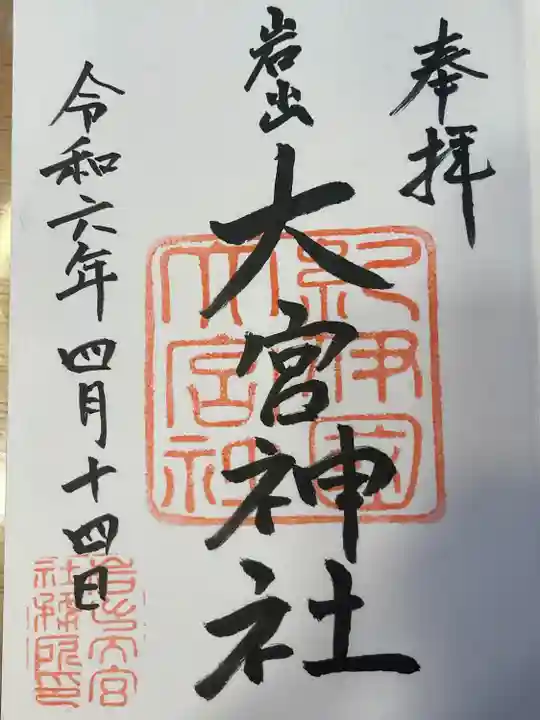 奉拝
岩出
大宮神社
紀伊国
大宮社
令和六年四月十四日
岩出大宮
社務所印